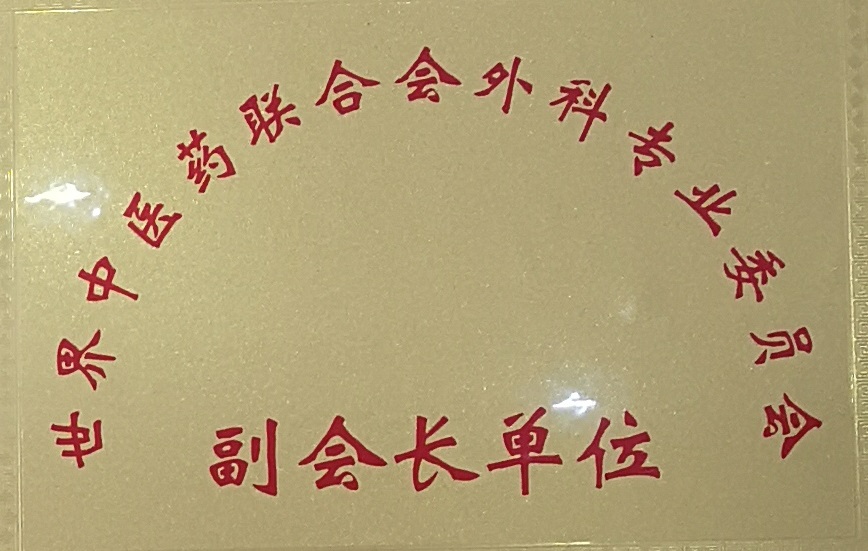 世界中医药联合会外科专业委员会
副会长单位